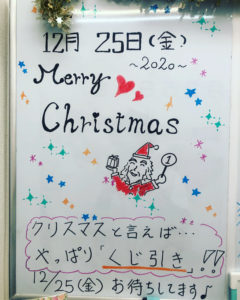 12月 25日(金)
~2020~
Merry
Christmas
1
クリスマスと言えば…
やっぱり「くじ引き」!!
12/25(金) お待ちしてます♪